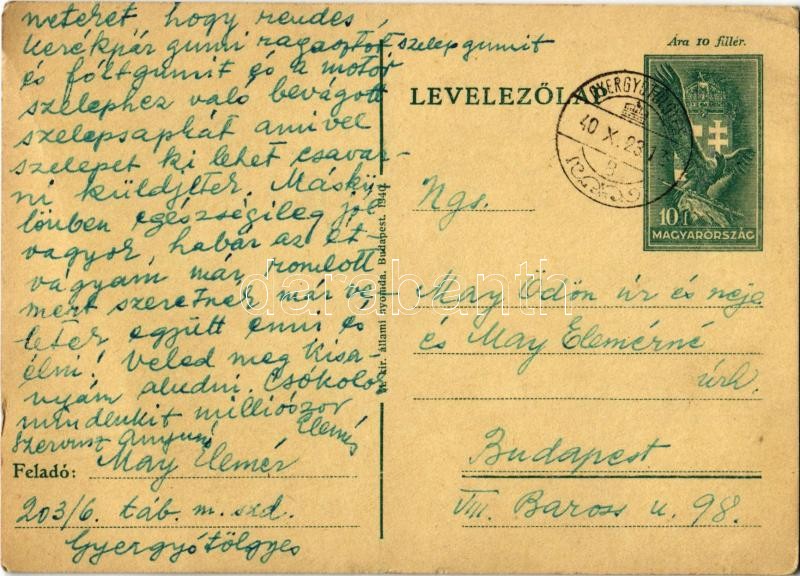 neteket hogy rendes
kerékpár gumi ragasztót szelepgumit
és fóltgumit és a motor
szelephez való bevágott
szelepsapkát amivel
szelepet ki lehet csavar-
ni küldjetek. Máskü-
lönben egészségileg jól
vagyok, habár az ét-
vágyam már romlott
mert szeretnék már ve-
letek együtt enni és
élni! Veled meg Kisa-
nyám aludni. Csókolok
mindenkit milliószor
Szervusz Anyum! Elemér
Feladó: May Elemér
203/6. táb. m. szd.
Gyergyótölgyes
M. kir. állami nyomda. Budapest. 1940.
Ára 10 fillér.
LEVELEZŐLAP
40 X. 23
10 f
MAGYARORSZÁG
Ngs.
May Ödön úr és neje
és May Elemérné
úrh.
Budapest
VIII. Baross u. 98.
darabanth